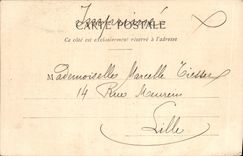 Imprimé
CARTE POSTALE
Ce côté est exclusivement réservé à l'adresse
Mademoiselle Marcelle
14 Rue
Lille